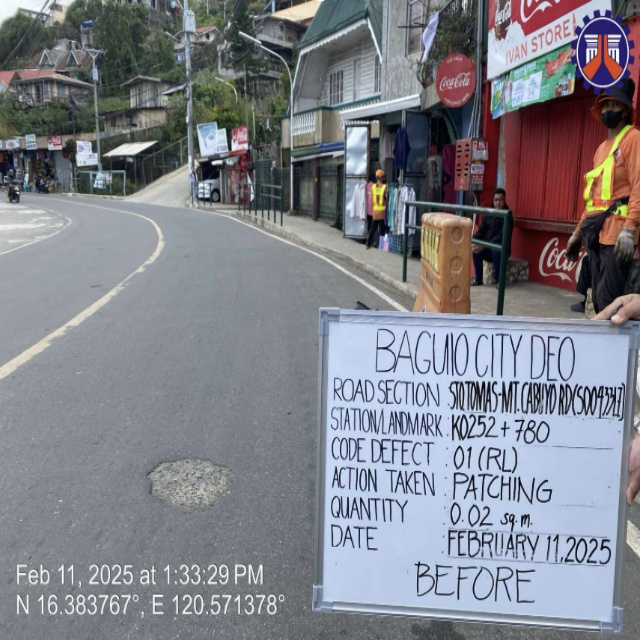 Coca-Cola
IVAN STORE
Coca-Cola
Coca-Cola
BAGUIO CITY DEO
ROAD SECTION : STO TOMAS-MT. CABUYO RD
STATION/LANDMARK : K0252 + 780
CODE DEFECT : 01 (RL)
ACTION TAKEN : PATCHING
QUANTITY : 0.02 sq.m.
DATE : FEBRUARY 11, 2025
BEFORE
Feb 11, 2025 at 1:33:29 PM
N 16.383767°, E 120.571378°